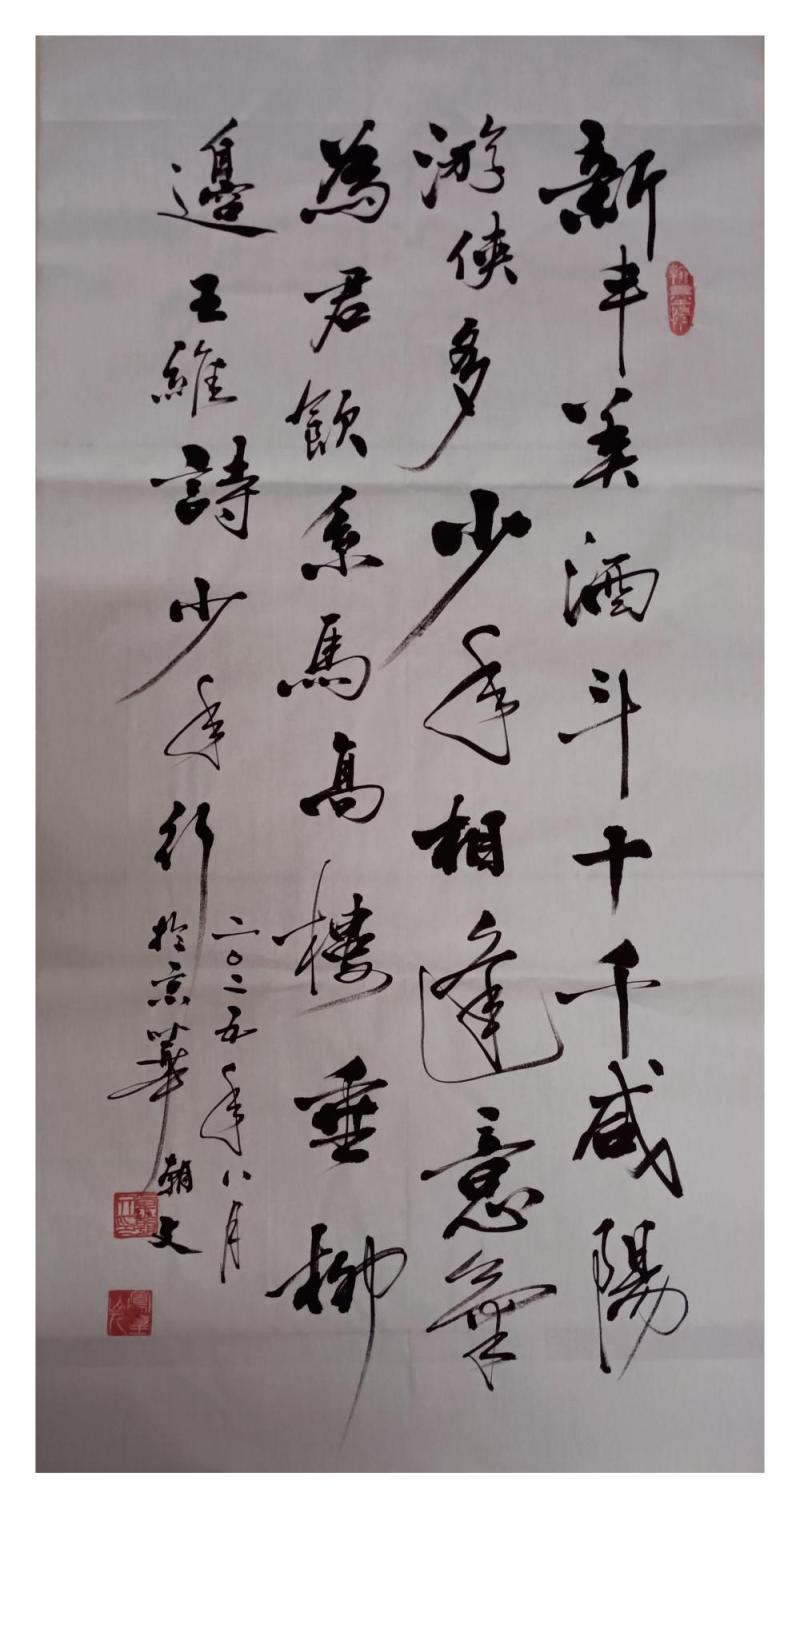 新丰美酒斗十千咸陽
游俠多少年相逢意氣
為君飲系馬高樓垂柳
邊王維詩少年行
二〇二五年八月
於京華朝文